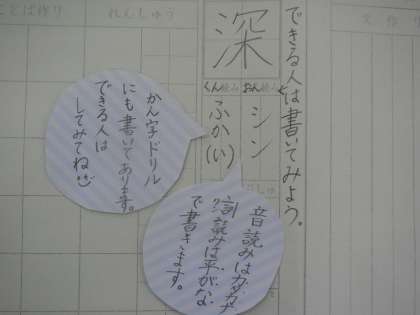 できる人は書いてみよう。
深
おん読み
シン
くん読み
ふか(い)
れんしゅう
ことば作り
かん字ドリル
にも書いてあります。
できる人は
してみてね
音読みはカタカナ
訓読みは平がな
で書きます。